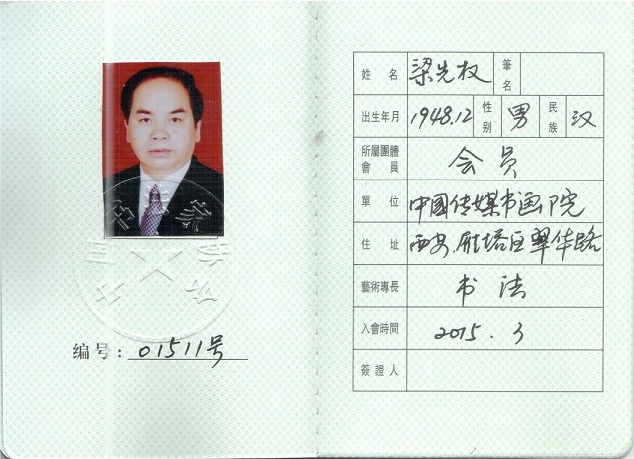 编号: 01511号
姓名 梁先权 筆名
出生年月 1948.12 性别 男 民族 汉
所屬團體會員 会员
單位 中國传媒书画院
住址 西安.雁塔区翠华路
藝術專長 书法
入會時間 2015.3
簽證人